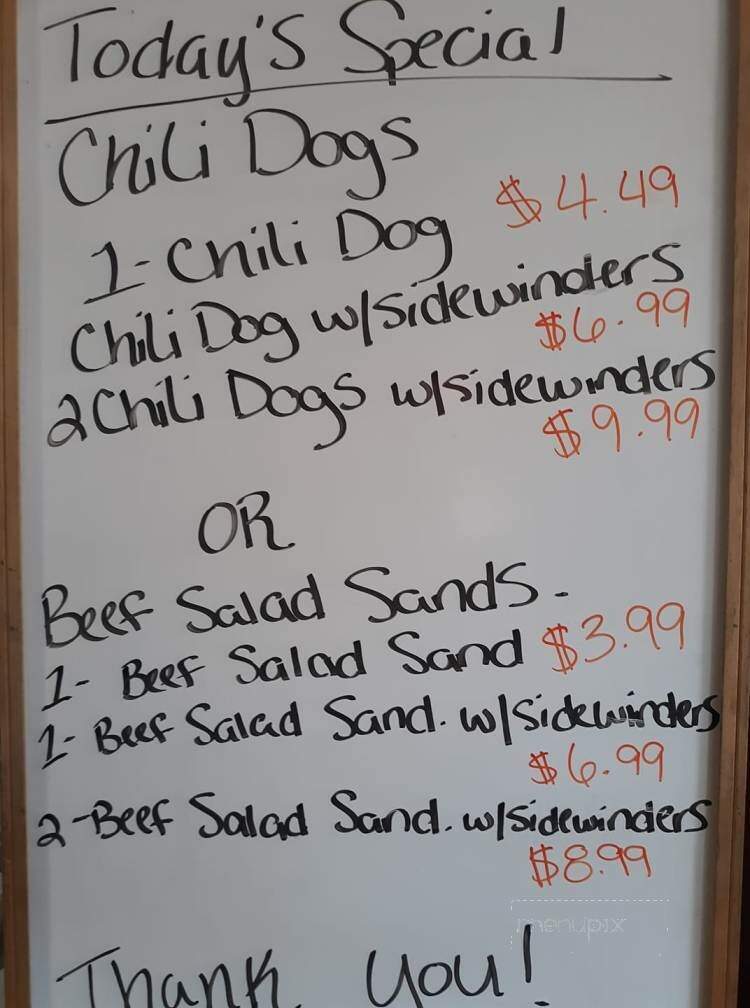 Today's Special
Chili Dogs
1- Chili Dog $4.49
Chili Dog w/sidewinders
$6.99
2 Chili Dogs w/sidewinders
$9.99
OR
Beef Salad Sands.
1- Beef Salad Sand $3.99
1- Beef Salad Sand. w/sidewinders
$6.99
2-Beef Salad Sand. w/sidewinders
$8.99
menupix
Thank you!